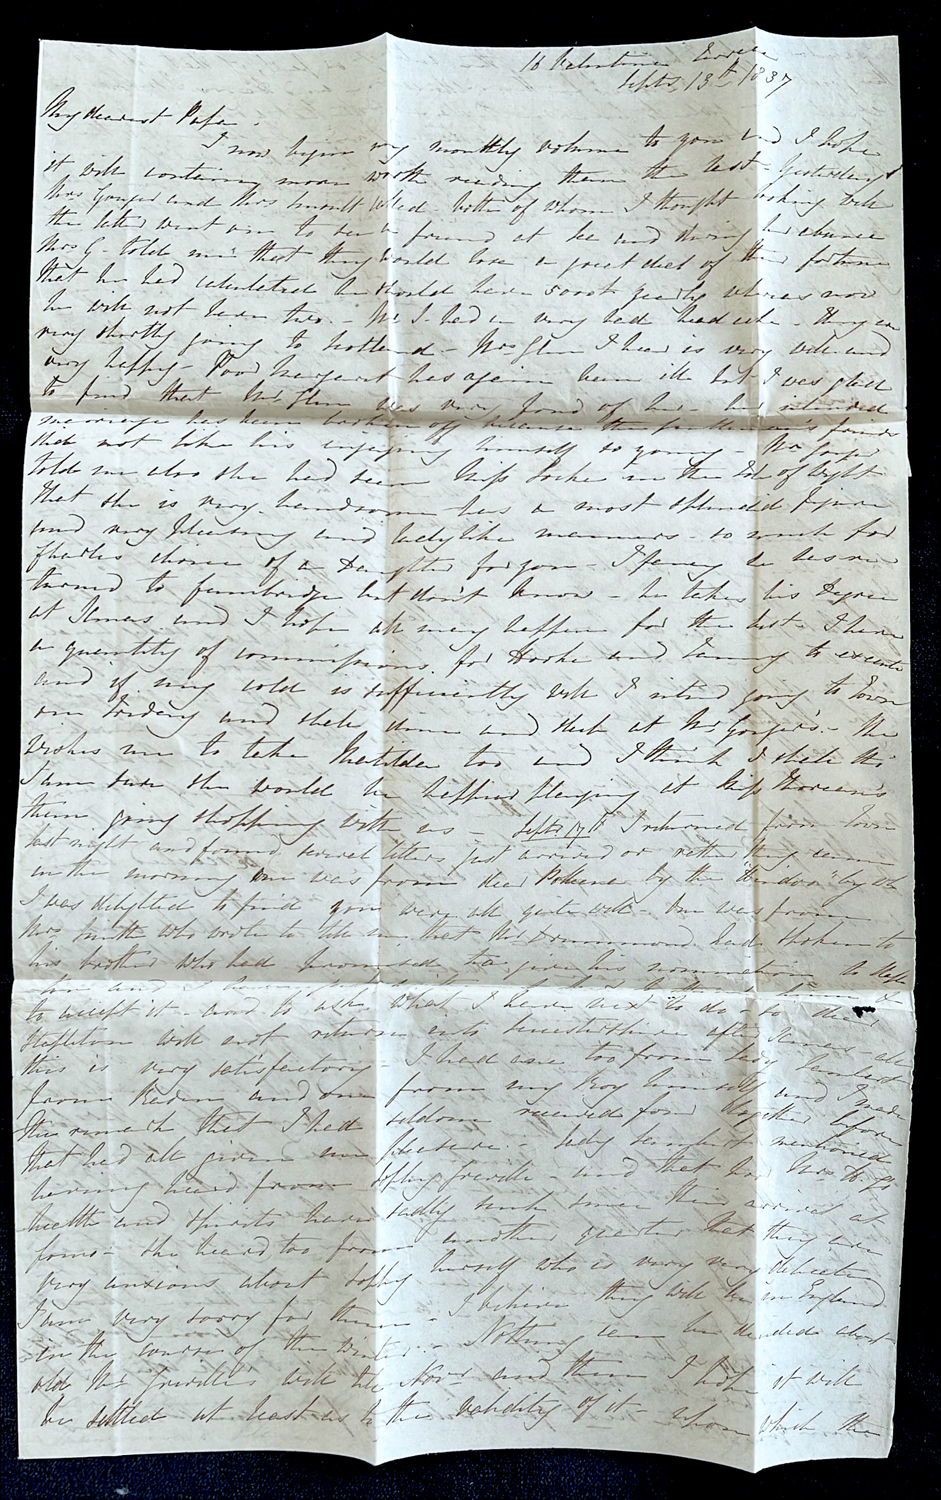 16 Valentine
Septr 13th 1837
My dearest Papa.
I now begin my monthly volume to you and I hope
it will contain more worth reading than the last - Yesterday
Mrs Gouger and Mrs called - both of whom I thought looking well
the latter went on to see a friend at and during her absence
Mrs G. told me that they would lose a great deal of their fortune
that he had calculated he should have yearly whereas now
he will not have two. Mr J. had a very bad head ache - they are
very shortly going to Scotland - Mrs Glen I hear is very well and
very happy - Poor Margaret has again been ill but I was glad
to find that Mrs Glen was very fond of her - her intended
marriage has been broken off because the friends
did not like his engaging himself so young - Mrs Gouger
told me also she had seen Miss Locke in the Isle of Wight
that she is very handsome has a most splendid figure
and very pleasing and ladylike manners - so much for
Charles choice of a Daughter for you - I fancy he has re
turned to Cambridge but don't know - he takes his Degree
at Xmas and I hope all may happen for the best. I have
a quantity of commissions for and Fanny to execute
and if my cold is sufficiently well I intend going to Town
on Friday and shall dine and sleep at Mrs Gouger's. She
wishes me to take Matilda too and I think I shall tho'
I am sure she would be happier staying at Miss
than going shopping with us - Septr 17th I returned from Town
last night and found several letters just arrived or rather they came
in the morning. One was from dear by the by wh
I was delighted to find you were all quite well - One was from
Mrs Smith who wrote to tell me that Mr Drummond had spoken to
his brother who had promised to give his nomination to
him and I have
to accept it - and to ask what I have next to do - so dear
Stapleton will not return into after Xmas - all
this is very satisfactory - I had one too from Lady
from and one from my Boy himself and I made
the remark that I had seldom received four together before
that had all given me pleasure - Lady mentioned
having heard from Sophy Gravelle - and that her Mrs
health and spirits have sadly sunk since their arrival at
- she heard too from another quarter that they are
very anxious about Sophy herself who is very very delicate
I am very sorry for them - I believe they will be in England
in the course of the Winter - Nothing can be decided about
old Mr will till Novr and then I hope it will
be settled at least as to the validity of it - upon which the